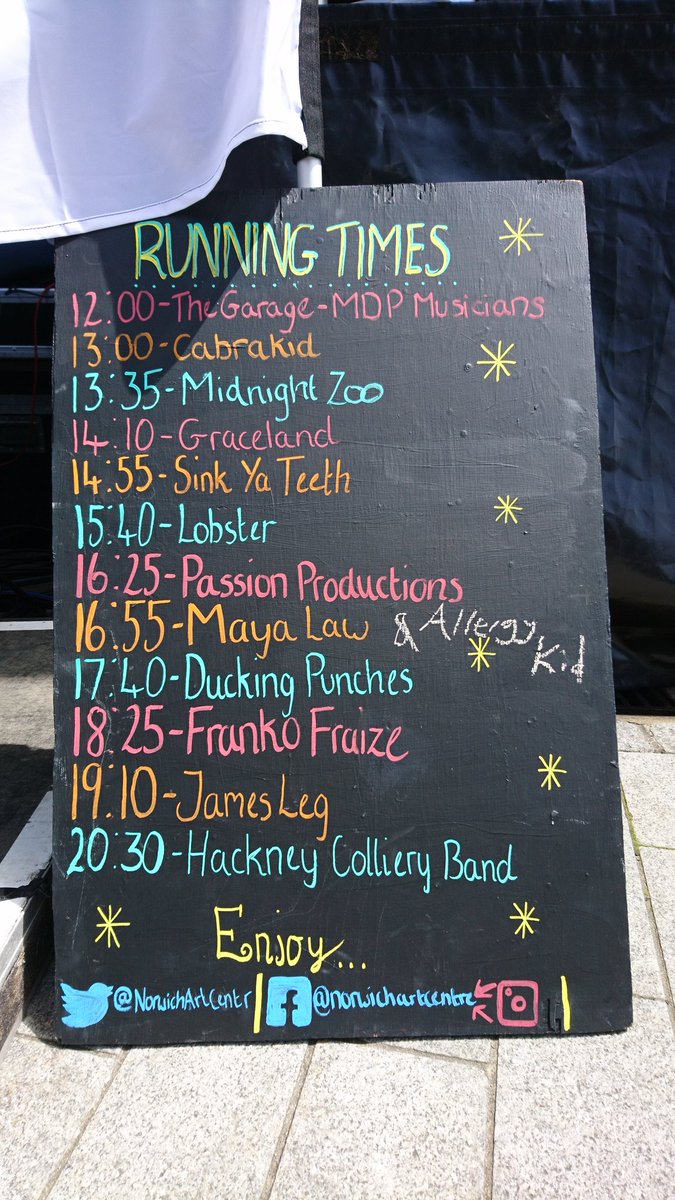 RUNNING TIMES
12:00-The Garage-MDP Musicians
13:00-Cabrakid
13:35-Midnight Zoo
14:10-Graceland
14:55-Sink Ya Teeth
15:40-Lobster
16:25-Passion Productions
16:55-Maya Law & Allergy Kid
17:40-Ducking Punches
18:25-Franko Fraize
19:10-James Leg
20:30-Hackney Colliery Band
Enjoy...
@NorwichArtCentr @norwichartcentre